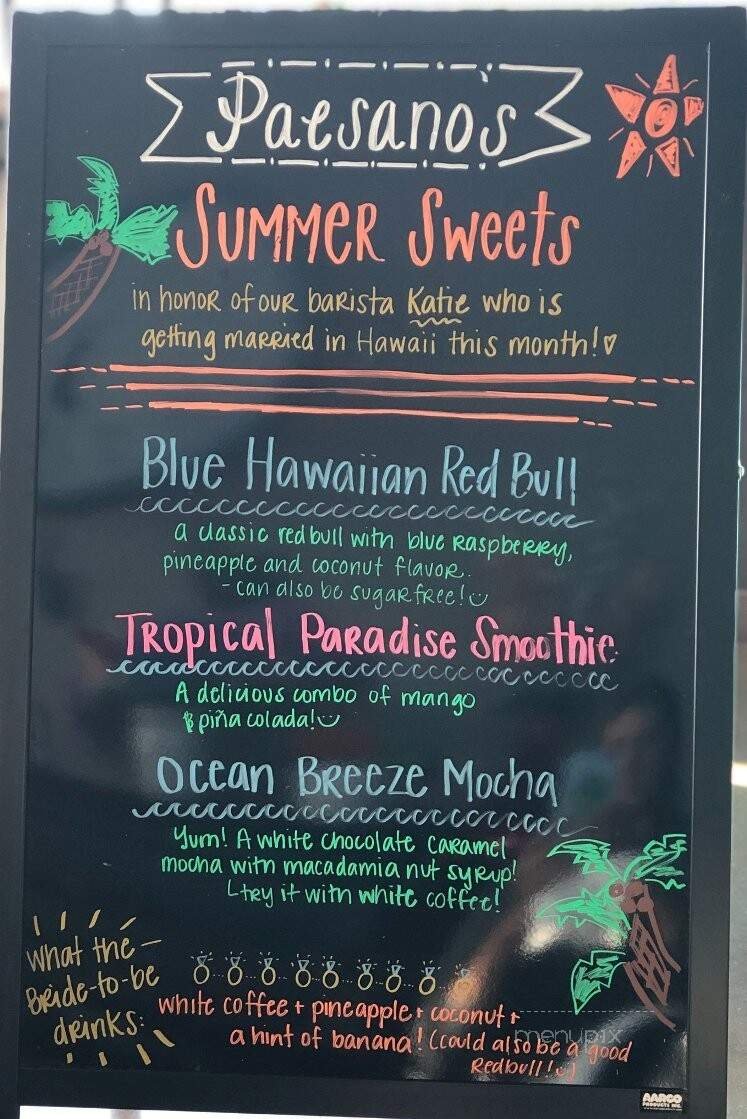 Paesano's
Summer Sweets
in honor of our barista Katie who is
getting married in Hawaii this month!
Blue Hawaiian Red Bull
a classic redbull with blue raspberry,
pineapple and coconut flavor.
- can also be sugar free!
Tropical Paradise Smoothie
A delicious combo of mango
& piña colada!
Ocean Breeze Mocha
Yum! A white chocolate caramel
mocha with macadamia nut syrup!
try it with white coffee!
What the
Bride-to-be
drinks:
white coffee + pineapple + coconut +
a hint of banana! (could also be a good
Redbull!)
menupix
AARCO
PRODUCTS INC.